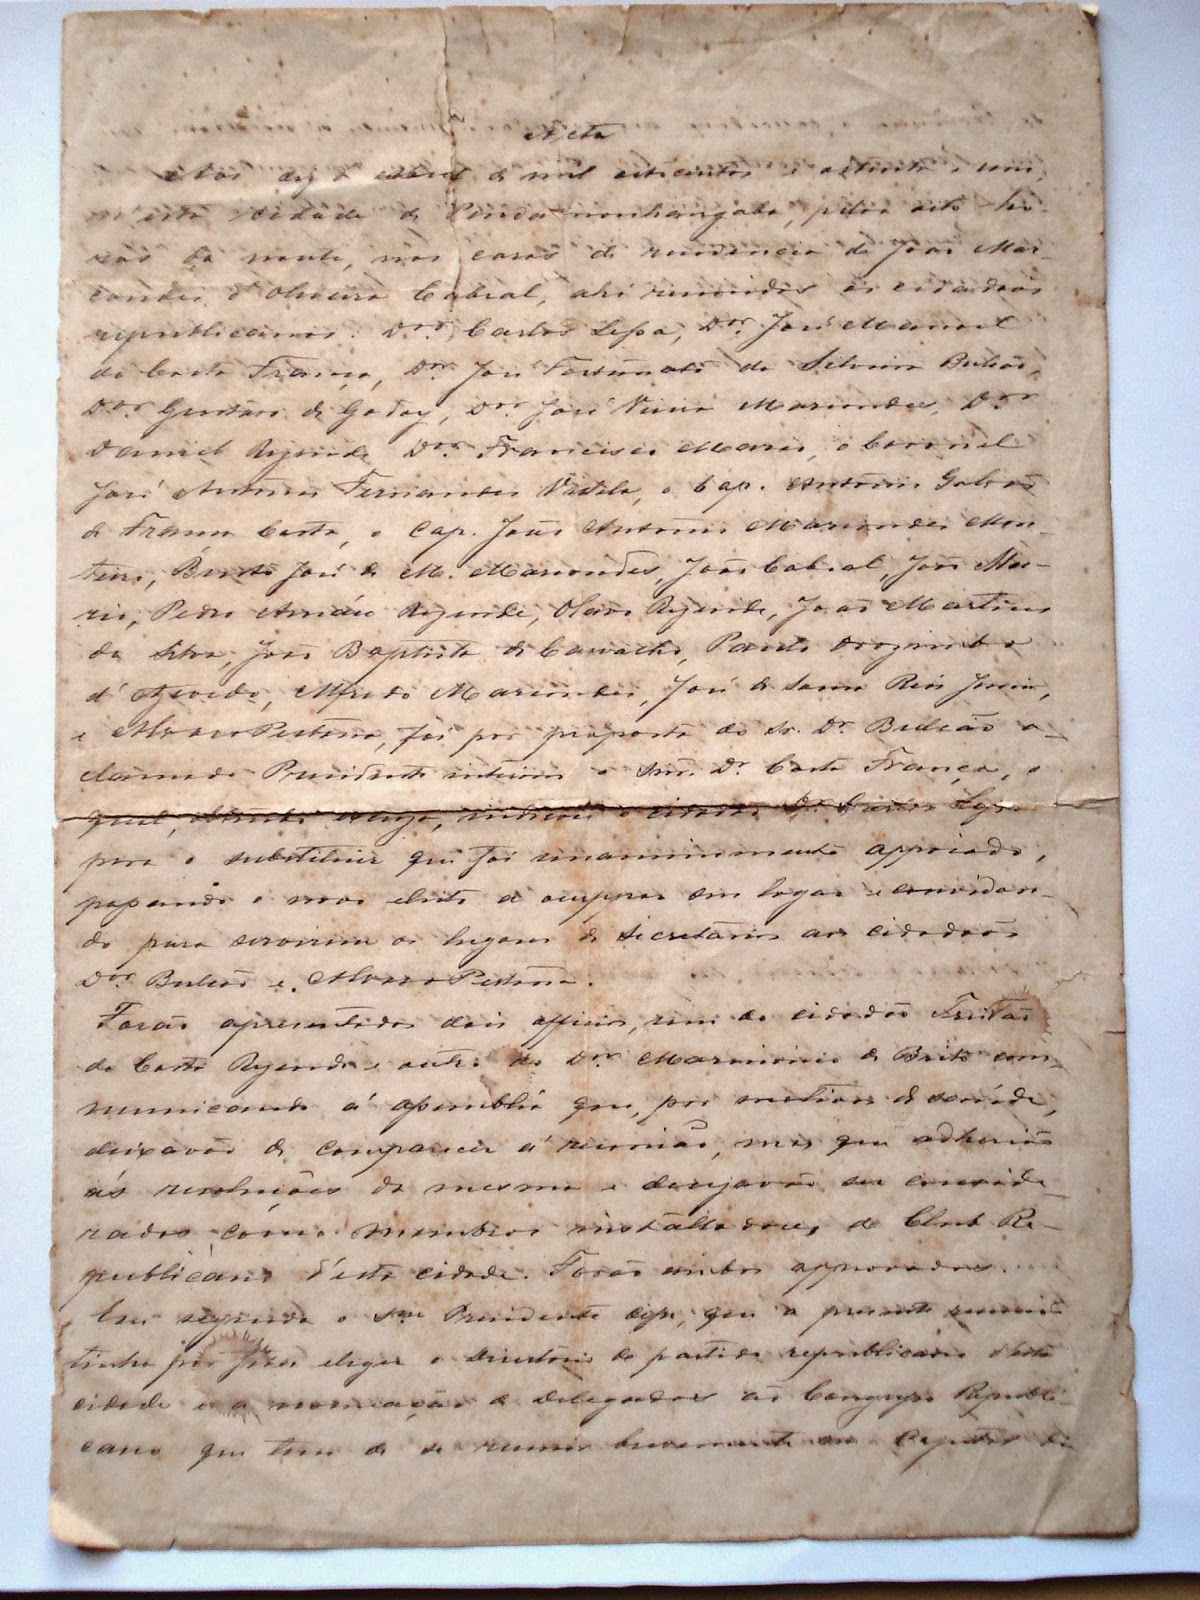 Acta
Aos dez de Abril de mil oitocentos e oitenta e um,
n'esta cidade de Pindamonhangaba, pelas oito ho-
ras da noute, nas casas de residencia de João Mar-
condes d'Oliveira Cabral, ahi reunidos os cidadãos
republicanos: Drs. Carlos Dr. José Manoel
da Costa França, Dr. José Fortunato da Silveira Bulcão,
Dr. Gustavo de Godoy, Dr. José Marcondes, Dr.
Daniel Rezende Dr. Francisco o Coronel
José Antonio Fernandes o Cap. Antonio Galvão
de França Costa, o Cap. João Antonio Marcondes Mon-
teiro, Bento José de M. Marcondes, João Cabral, João Ma-
rio, Pedro Rezende, Olavo Rezende, João Martins
da Silva, João Baptista de Carvalho, Paulo Orozimbo
d'Azevedo, Alfredo Marcondes, José de
e Alvaro Pestana, foi por proposta do Sr. Dr. Bulcão a-
clamado Presidente interino o Snr. Dr. Costa França, o
qual, indicou o cidadão Dr. Carlos
para o substituir que foi unanimimente appoiado,
passando o novo eleito a occuppar seu logar e convidan-
do para servirem os lugares de secretarios aos cidadãos
Dr. Bulcão e Alvaro Pestana.
Forão apresentados dois officios, um do cidadão Freitas
da Costa Rezende e outro do Dr. Marcondes de Brito com-
municando á assemblea que, por motivos de saúde,
deixavão de comparecer á reunião, mas que adherião
ás resoluções da mesma e desejavão ser conside-
rados como membros installadores do Club Re-
publicano d'esta cidade. Forão ambos approvados.
Em seguida o Snr. Presidente disse, que a presente reunião
tinha por fim eleger o Directorio do partido republicano d'esta
cidade e a nomeação de Delegados ao Congresso Republi-
cano que tem de se reunir brevemente na Capital da